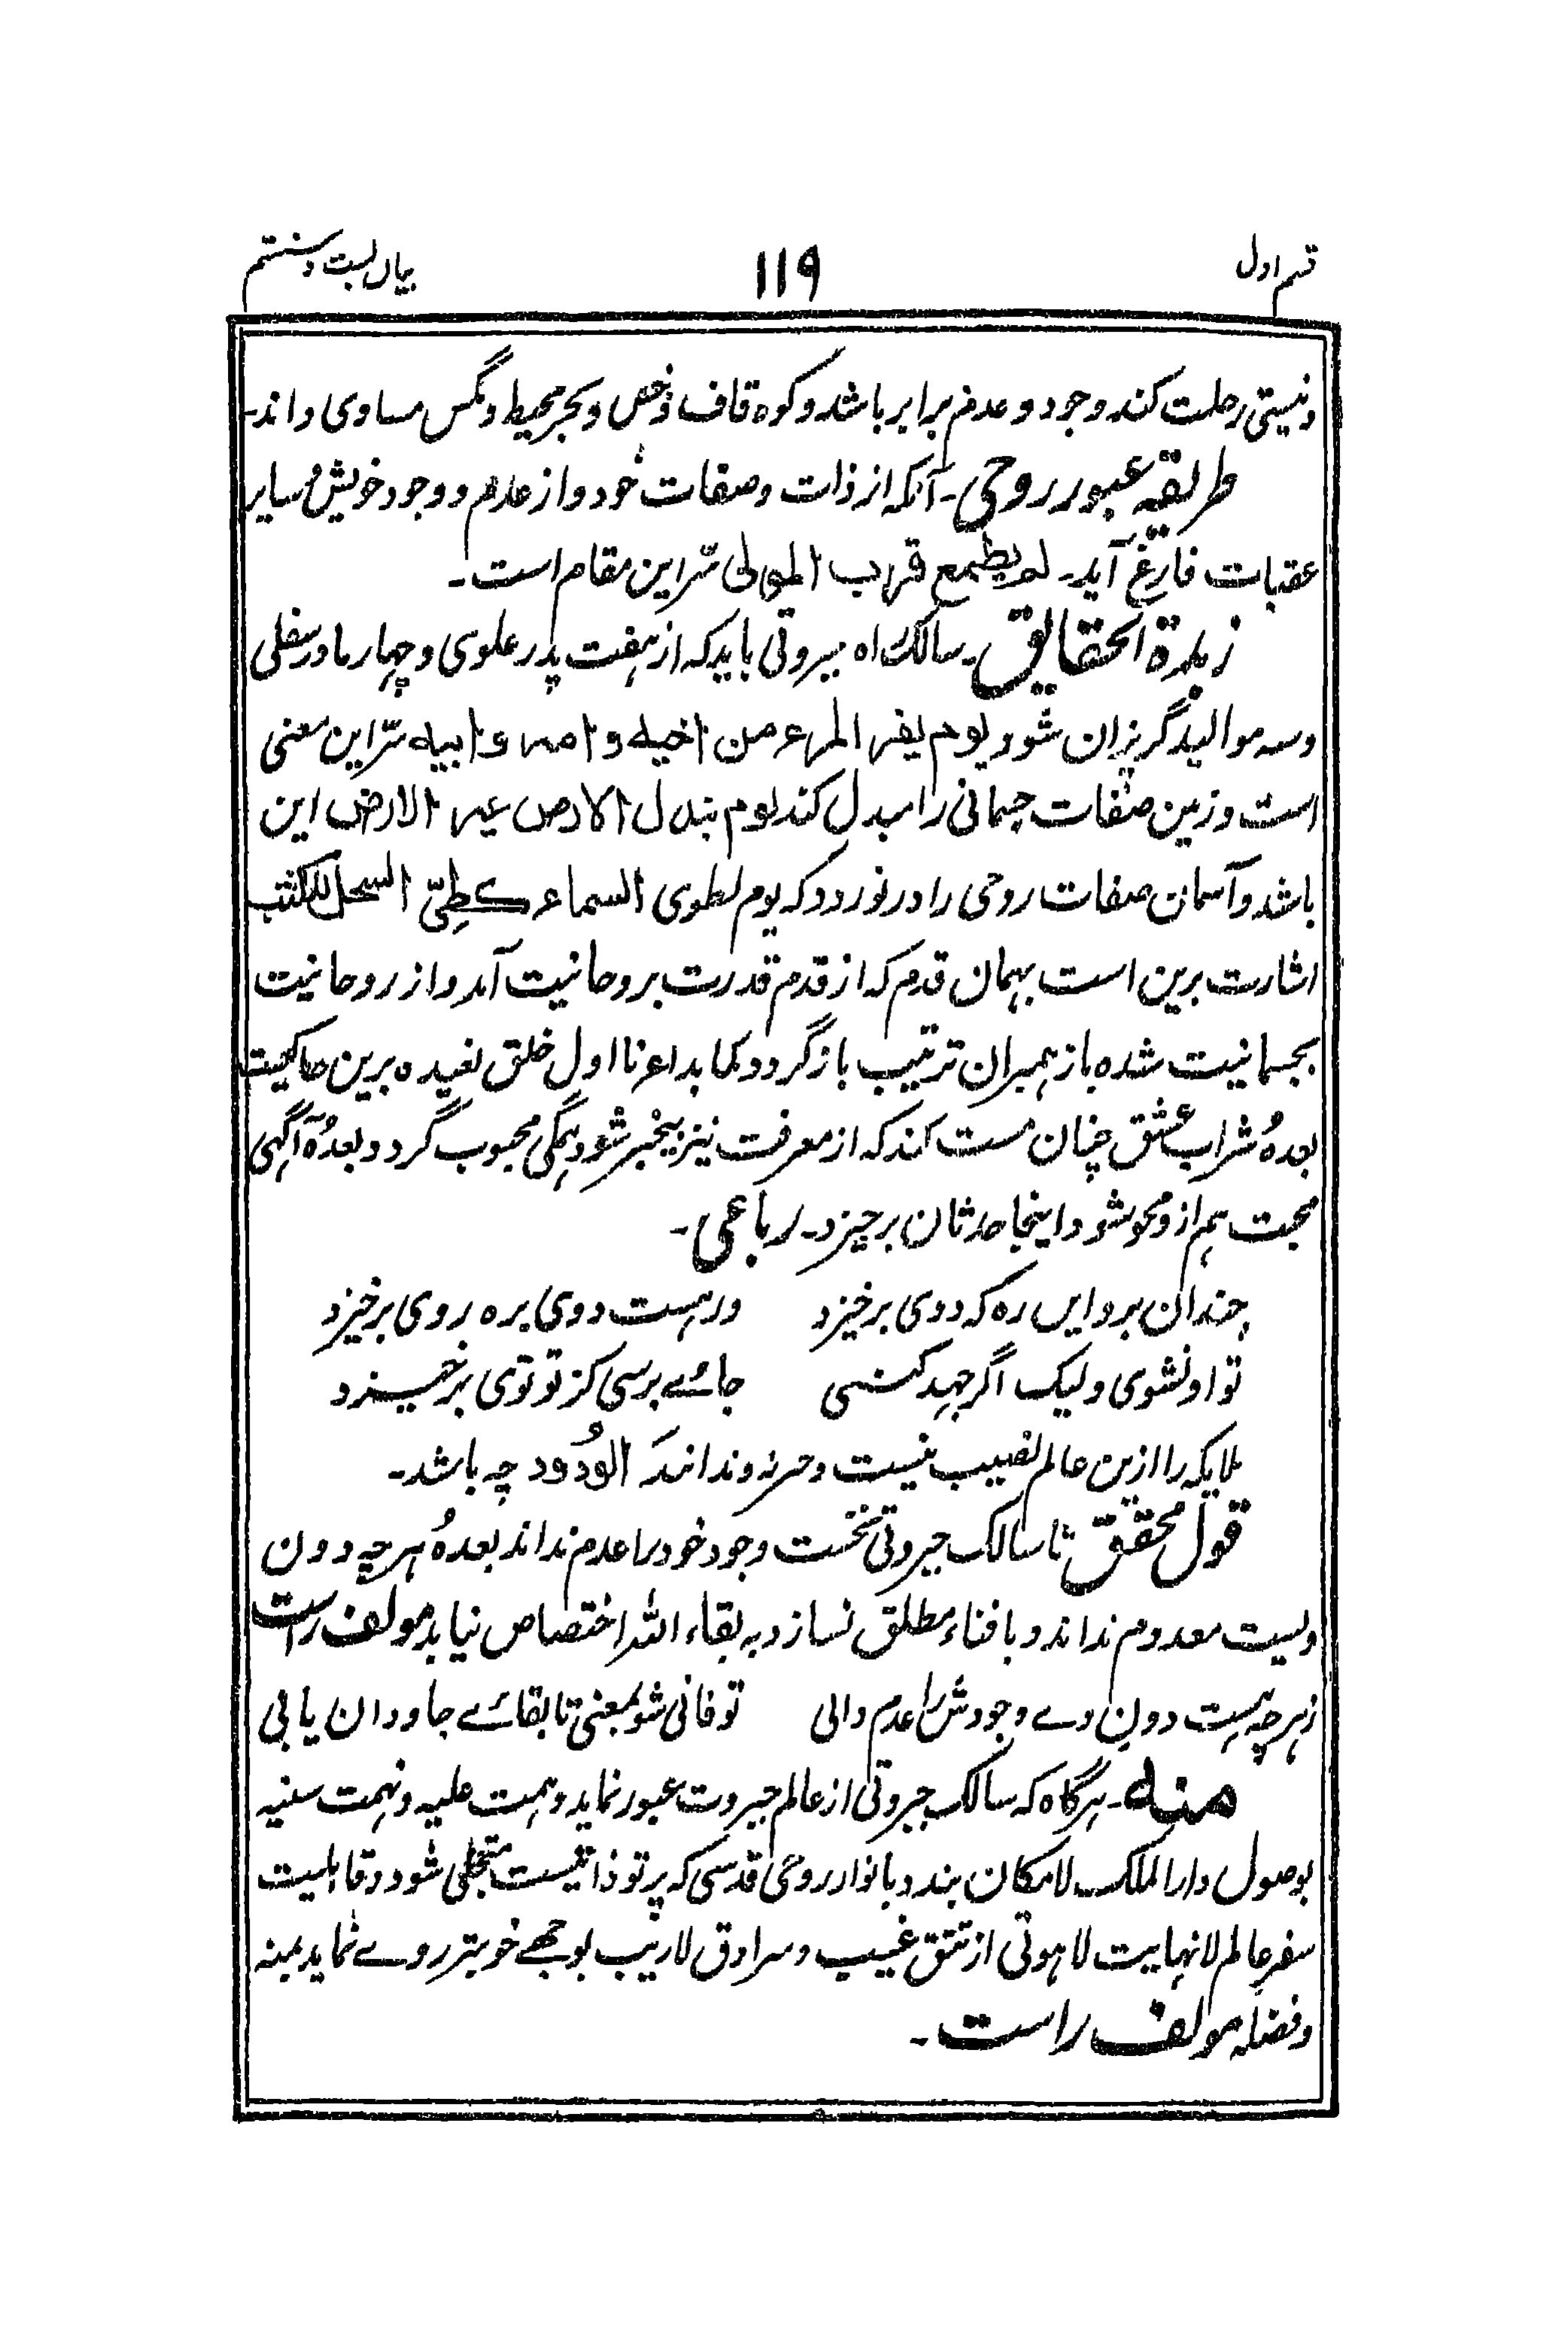 قسم اول
۱۱۹
بیان بست و هشتم
ونیستی رحلت کند وجود و عدم برابر باشد و کوه قاف و خس و بحر محیط و مگس مساوی داند۔
طریقہ عبور روحی۔ آنکہ از ذات و صفات خود و از عدم و وجود خویش و سایر
عقبات فارغ آید۔ لم یطمع قرب المولی سّر این مقام است۔
زبدة الحقایق۔ سالک راه جبروتی باید کہ از ہفت پدر علوی و چہار مادر سفلی
وسہ موالید گریزان شود یوم یفر المرء من اخیہ و امہ و ابیہ سّر این معنی
است و زمین صفات جسمانی را مبدل کند یوم تبدل الارض غیر الارض این
باشد و آسمان صفات روحی را در نوردد کہ یوم نطوی السماء کطیّ السجل للکتب
اشارت برین است بہمان قدم کہ از قدم قدرت بروحانیت آمد و از روحانیت
بجسمانیت شده باز ہمبران ترتیب باز گردد کما بداءنا اول خلق نعیده برین حاکیست
بعدهٗ شراب عشق چنان مست کند کہ از معرفت نیز بیخبر شود ہمگی محبوب گردد و بعدهٗ آگہی
محبت ہم ازو محو شود اینجا حدثان برخیزد۔ رباعی۔
چندان برو ایں ره کہ دوی برخیزد ور ہست دوی بره روی برخیزد
تو او نشوی ولیک اگر جہد کنی جائے برسی کز تو توی برخیزد
ملایکہ را ازین عالم نصیب نیست و حرنہ و ندانند کہ الوُدود چہ باشد۔
قول محقق تا سالک جبروتی نخست وجود خود را عدم نداند بعدهٗ ہر چہ دون
ویست معدوم نداند و با فناء مطلق نسازد بہ بقاء اللہ اختصاص نیابد مولف راست
زہر چہ ہست دون وے وجودش را عدم دانی تو فانی شو بمعنی تا بقائے جاودان یابی
منہ۔ ہرگاه کہ سالک جبروتی از عالم جبروت عبور نماید و ہمت علیہ و نہمت سنیہ
بوصول دار الملک لامکان بندد با نوار روحی قدسی کہ پرتو ذاتیست متجلی شود و قابلیت
سفر عالم لانہایت لاہوتی از تتق غیب و سرادق لاریب بوجہے خوبتر روے نماید بمنہ
وفضلہ مولف راست۔